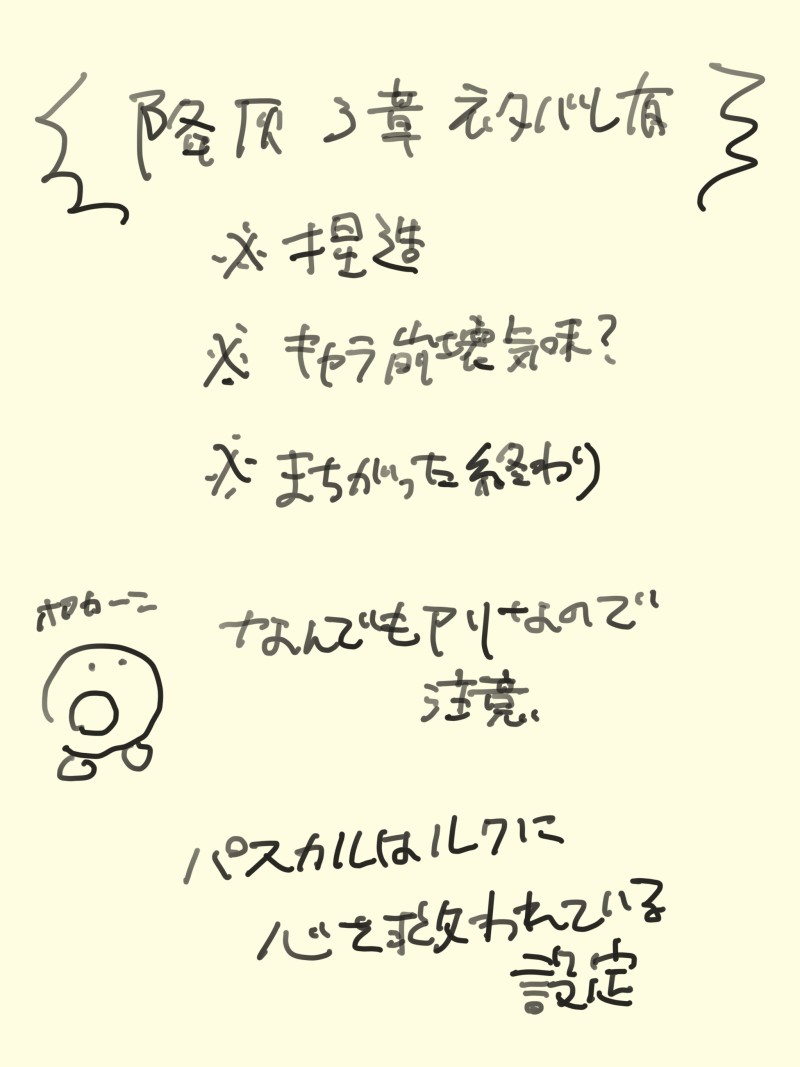 降頂 3章 ネタバレ有
※ 捏造
※ キャラ崩壊気味?
※ まちがった終わり
なんでもアリなので
注意
パスカルはルクに
心を救われている
設定